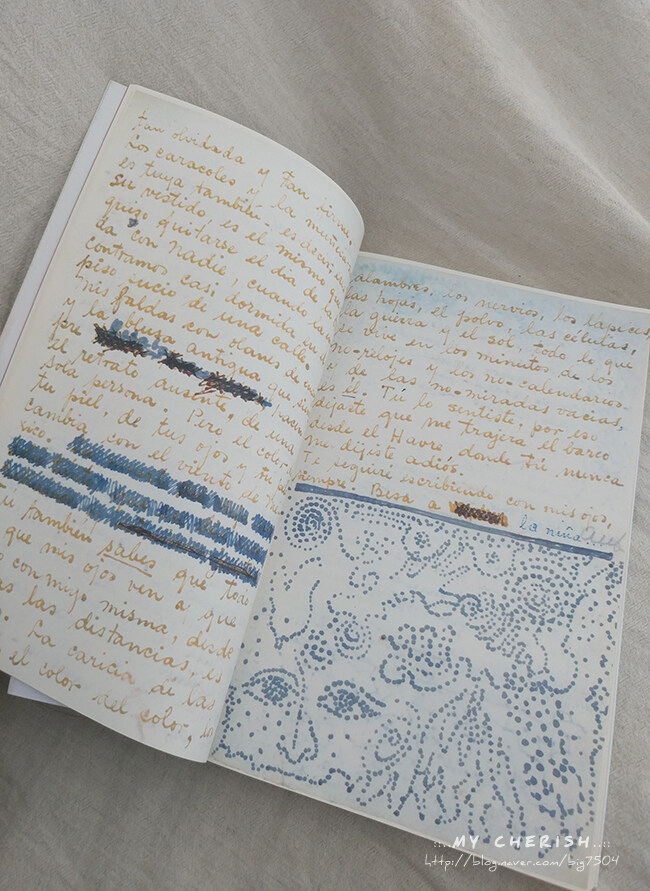 tan olvidada y tan firme.
Los caracoles y la muñeca
es tuya también - es decir,
su vestido, es el mismo
quiso quitarse el día de la
da con nadie, cuando
contramos casi dormida
piso sucio de una calle.
mis faldas con olanes de
y la blusa antigua que
pre
el retrato ausente, de una
sola persona. Pero el color
tu piel, de tus ojos y tu
cambia con el viento de
xico.
tu también sabes que todo
que mis ojos ven y que
conmigo misma, desde
las distancias, es
La caricia de las
el color del color,
alambres, los nervios, los lápices,
las hojas, el polvo, las células,
la guerra y el sol, todo lo que
se vive en los minutos de los
no-relojes y los no-calendarios
y de las no-miradas vacías,
es él. Tú lo sentiste, por eso
dejaste que me trajera el barco
desde el Havre, donde tú nunca
me dijiste adiós.
Te seguiré escribiendo con mis ojos,
siempre. Besa a
la niña
...MY CHERISH...
http://blog.naver.com/big7504